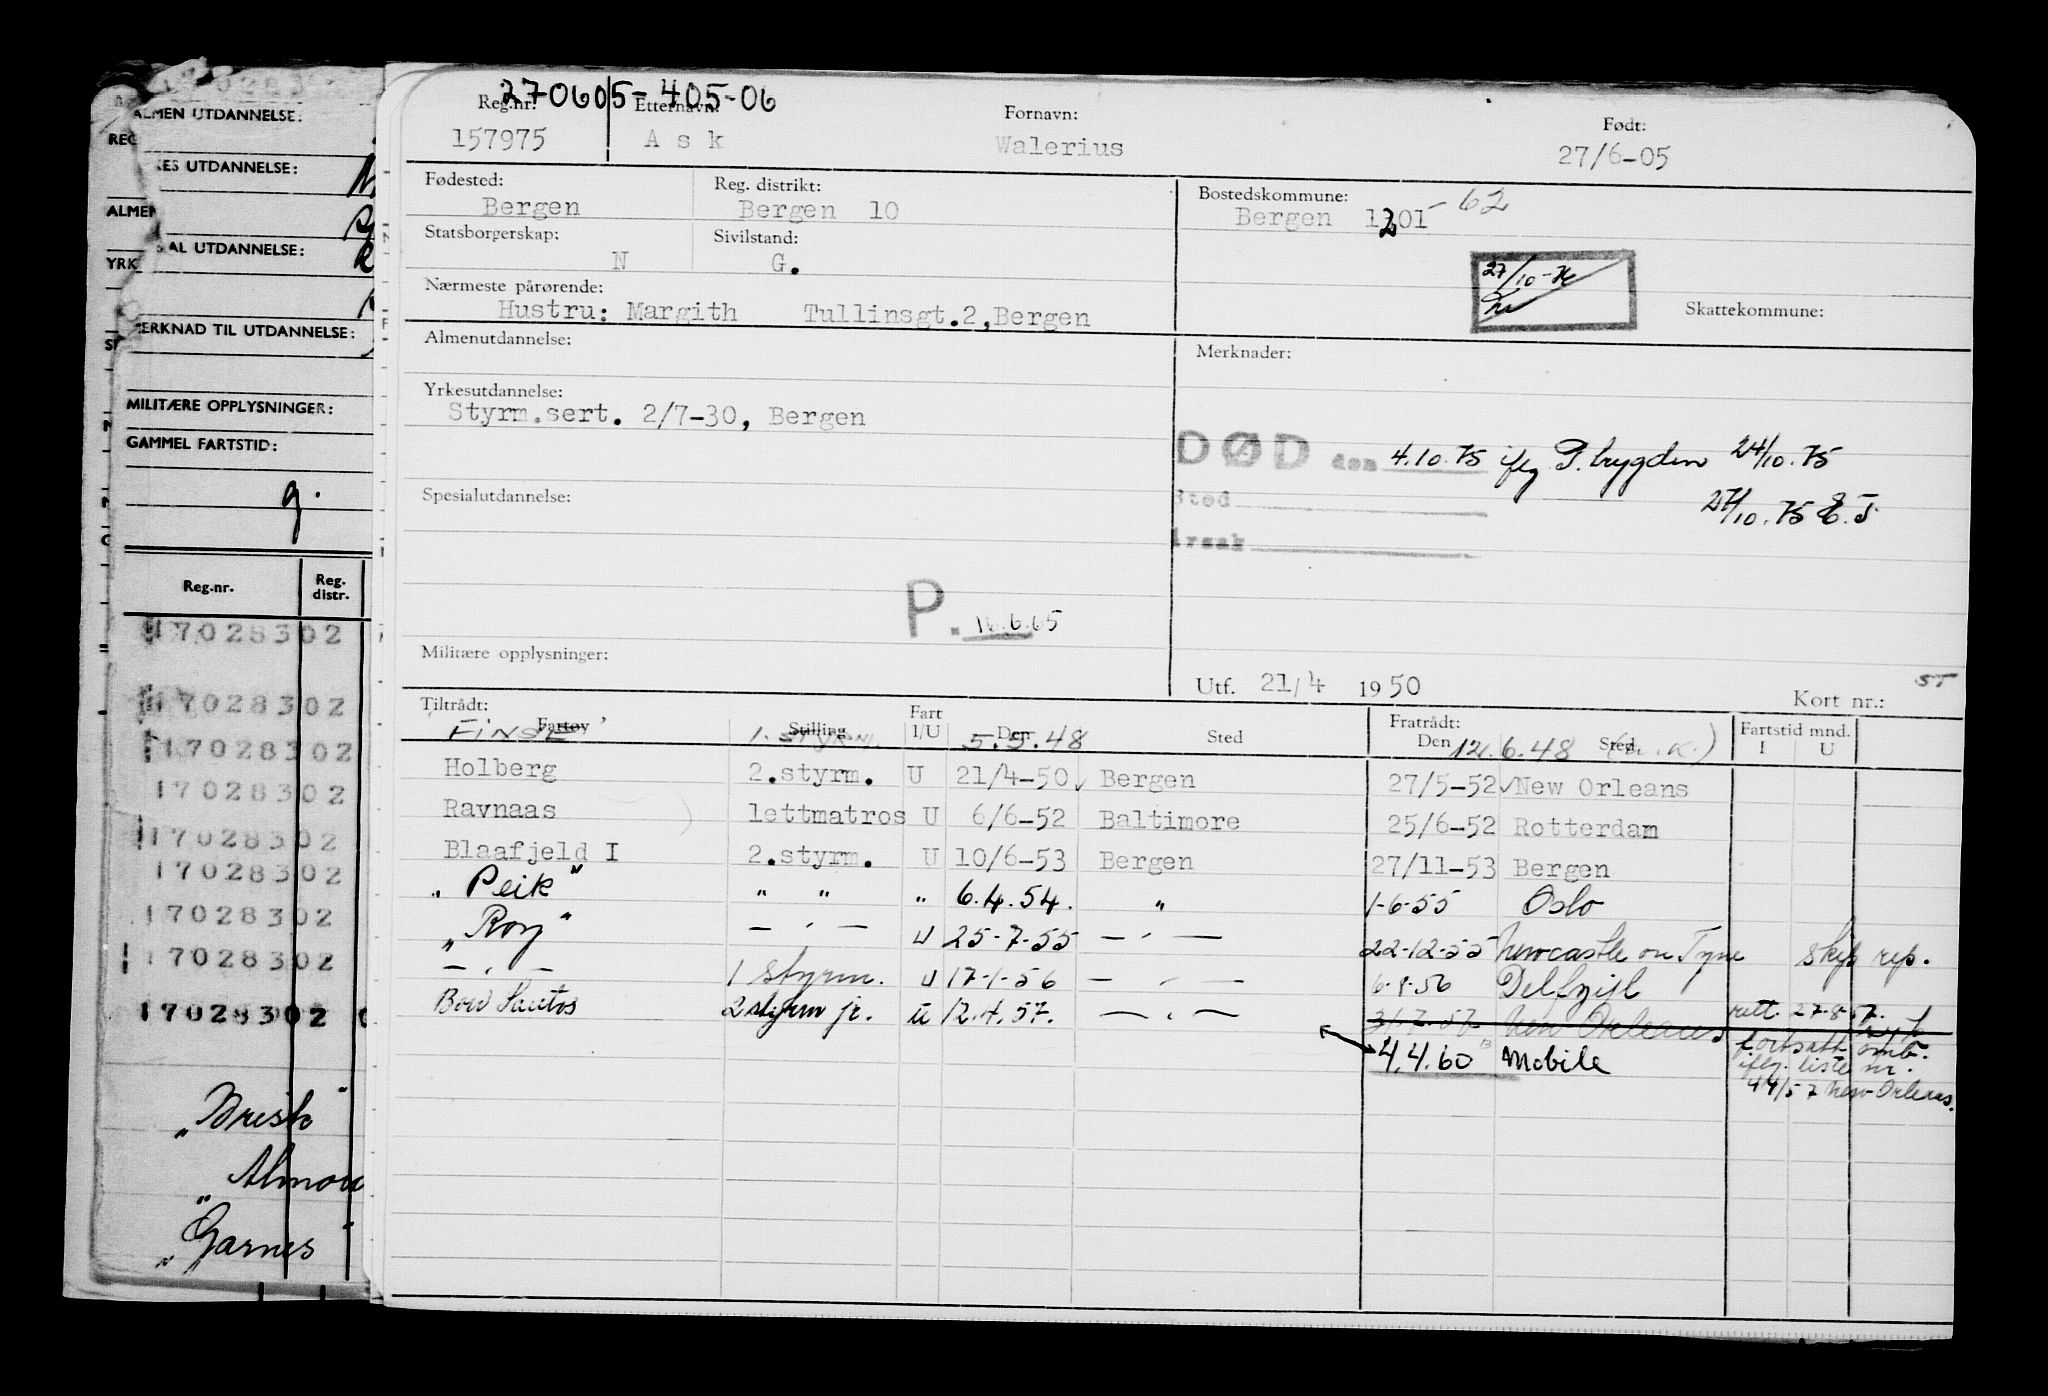 ALMEN UTDANNELSE:
REG
KES UTDANNELSE:
ALMEN
AL UTDANNELSE:
YRK
MERKNAD TIL UTDANNELSE:
MILITÆRE OPPLYSNINGER:
GAMMEL FARTSTID:
g.
Reg.nr. Reg. distr.
17028302
17028302
17028302
17028302
17028302
17028302
17028302
17028302
17028302
"Brisk"
"Almora
"Garnes"
270605-405-06
Reg.nr. Etternavn: Fornavn: Født:
157975 Ask Walerius 27/6-05
Fødested: Reg. distrikt: Bostedskommune:
Bergen Bergen 10 Bergen 1201 - 62
Statsborgerskap: Sivilstand:
N G.
27/10-76
Nærmeste pårørende: Skattekommune:
Hustru: Margith Tullinsgt.2,Bergen
Almenutdannelse: Merknader:
Yrkesutdannelse:
Styrm.sert. 2/7-30, Bergen
DØD den 4.10.75 iflg P. trygden 24/10.75
Sted 27/10.75 E.T.
Årsak
Spesialutdannelse:
P. 16.6.65
Militære opplysninger:
Utf. 21/4 1950 Kort nr.: ST
Tiltrådt: Fratrådt: Fartstid mnd.
Fartøy Stilling Fart I/U Den Sted Den Sted I U
FINSE 1. STYRM. 5.5.48 12.6.48
Holberg 2.styrm. U 21/4-50 Bergen 27/5-52 New Orleans
Ravnaas lettmatros U 6/6-52 Baltimore 25/6-52 Rotterdam
Blaafjeld I 2.styrm. U 10/6-53 Bergen 27/11-53 Bergen
"Peik" " " " 6.4.54. " 1-6-55 Oslo
"Roy" — " — U 25-7-55 — " — 22-12-55 Newcastle on Tyne skip rep.
— " — 1 styrm. U 17-1-56 — " — 6-8-56 Delfzijl
Bow Santos 2 styrm jr. U 12.4.57. — " — 31.7.57 New Orleans rett. 27-8-57.
4.4.60 Mobile fortsatt omb.
iflg. liste nr.
44/57 New-Orleans.